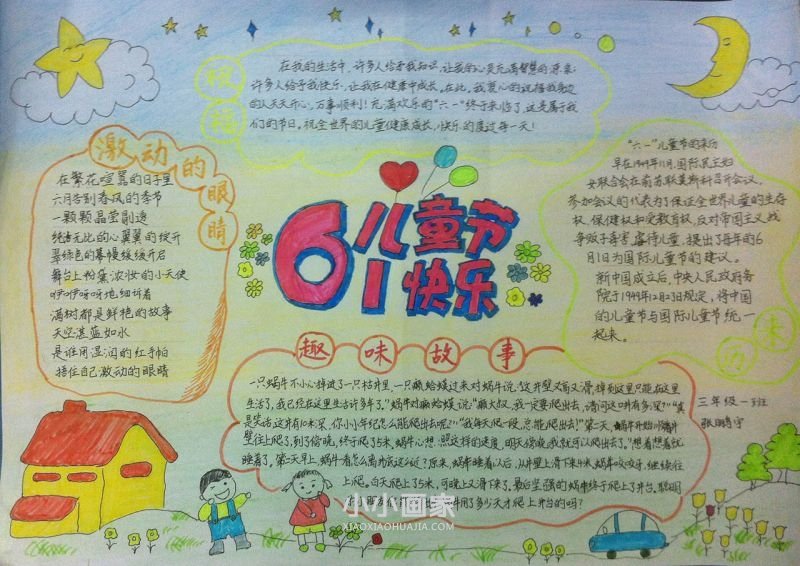 祝福
在我的生活中，许多人给予我知识，让我的心灵充满智慧的源泉；
许多人给予我快乐，让我在健康中成长。在此，我衷心的祝福我身边
的人天天开心，万事顺利！充满欢乐的“六一”终于来临了，这是属于我
们的节日。祝全世界的儿童健康成长，快乐的度过每一天！
激动的眼睛
在繁花喧嚣的日子里
六月告别春风的季节
一颗颗晶莹剔透
纯洁无比的心翼翼的绽开
翠绿色的幕幔缓缓开启
舞台上粉黛浓妆的小天使
咿咿呀呀地细诉着
满树都是鲜艳的故事
天空湛蓝如水
是谁用湿润的红手帕
捂住自己激动的眼睛
61儿童节
快乐
“六一”儿童节的来历
早在1949年11月，国际民主妇
女联合会在前苏联莫斯科召开会议，
参加会议的代表为了保证全世界儿童的生存
权、保健权和受教育权，反对帝国主义战
争贩子毒害、虐待儿童，提出了每年的6
月1日为国际儿童节的建议。
新中国成立后，中央人民政府务
院于1949年12月23日规定，将中国
的儿童节与国际儿童节统一
起来。
趣味故事
一只蜗牛不小心掉进了一只枯井里，一只癞蛤蟆过来对蜗牛说：“这井壁又高又滑，掉到这里只能在这里
生活了，我已经在这里生活许多年了。”蜗牛对癞蛤蟆说：“癞大叔，我一定要爬出去，请问这口井有多深？”“真
是笑话，这井有10米深，你小小年纪怎么能爬出去呢？”“我每天爬一段，总能爬出去！”第一天，蜗牛开始顺着井
壁往上爬，到了傍晚，终于爬了5米，蜗牛心想：照这样的速度，明天傍晚，我就可以爬出去了。”想着想着就
睡着了，第二天早上，蜗牛看怎么离井底这么近？原来，蜗牛睡着以后，从井壁上滑下来4米，蜗牛咬咬牙，继续往
上爬。白天爬了5米，可晚上又滑下来了。最后坚强的蜗牛终于爬上了井台。聪明
用了多少天才爬上井台的吗？
三年级一班
小小画家
XIAOXIAOHUAJIA.COM